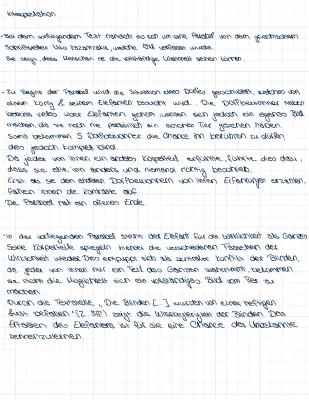 Interpretation
- Bei dem vorliegenden Text handelt es sich um eine Parabel von dem griechischen
Schriftsteller verfasst wurde.
Sie zeigt, dass Menschen nie die vollständige Wahrheit sehen können.
- Zu Beginn der Parabel wird die Situation eines Dorfes geschildert, welches von
einem König & seinem Elefanten besucht wird. Die Dorfbewohner haben
bereits vieles über Elefanten gehört wollen sich jedoch ein eigenes Bild
machen, da sie noch nie persönlich ein solches Tier gesehen haben.
Somit bekommen 5 Dorfbewohner die Chance ihn berühren zu dürfen,
dies jedoch komplett blind.
Da jeder von ihnen ein anderes Körperteil erfühlte, führte dies dazu,
dass sie alle ihn anders und niemand richtig beschrieb.
Erst als sie den anderen Dorfbewohnern von ihren Erfahrungen erzählen,
fallen ihnen die Kontraste auf.
Die Parabel hat ein offenes Ende.
- In der vorliegenden Parabel steht der Elefant für die Wirklichkeit als Ganzes
Seine Körperteile spiegeln hierbei die verschiedenen Facetten der
Wirklichkeit wieder. Dies entpuppt sich als zentraler Konflikt der Blinden,
da jeder von ihnen nur ein Teil des Ganzen wahrnimmt, bekommen
sie nicht die Möglichkeit sich ein vollständiges Bild vom Tier zu
machen.
Durch die Textstelle, "Die Blinden [...] wurden von einer heftigen
Lust befallen" (Z. 5ff) zeigt die Wissbegierigkeit der Blinden. Das
Erfassen des Elefanten ist für sie eine Chance das Unbekannte
kennenzulernen.